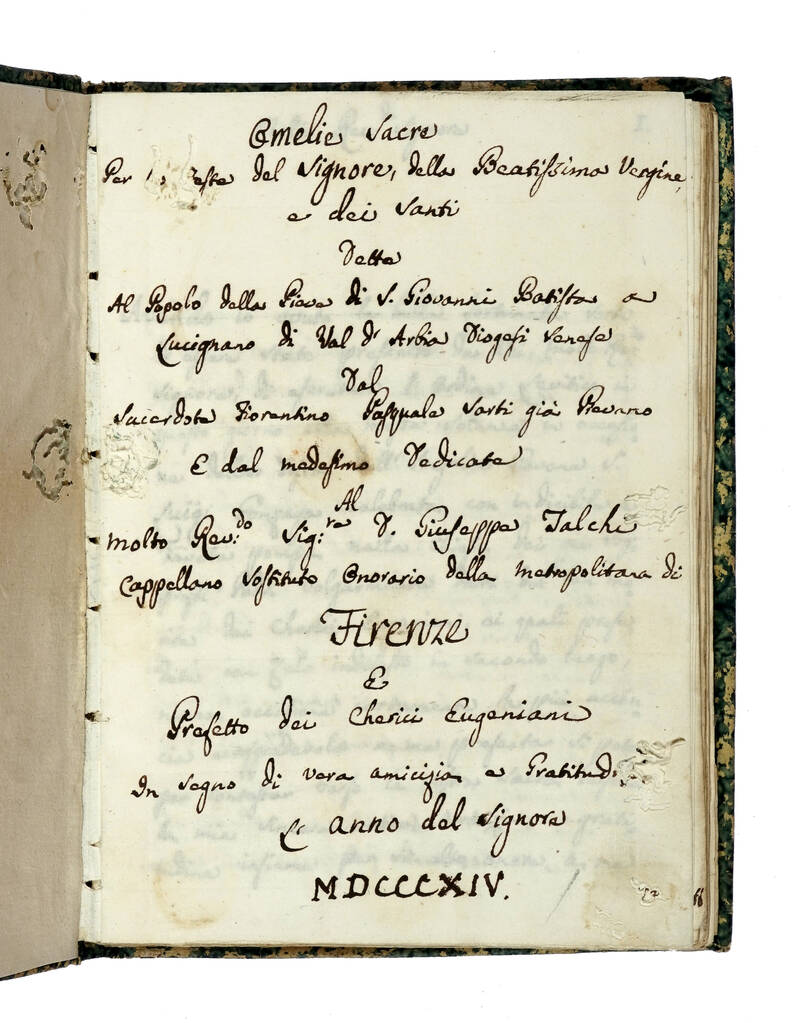 Omelie Sacre
Per este del Signore, della Beatissima Vergine,
e dei Santi
Dette
Al Popolo della Pieve di S. Giovanni Batista a
Lucignano di Val d' Arbia Diogesi Senese
Dal
Sacerdote Fiorentino Pasquale Sarti già Pievano
E dal medesimo Dedicate
Al
Molto Rev:do Sig:re D. Giuseppe Talchi
Cappellano Sostituto Onorario della Metropolitana di
Firenze
E
Prefetto dei Cherici Eugeniani
In segno di vera amicizia e Gratitud
L' anno del Signore
MDCCCXIV.